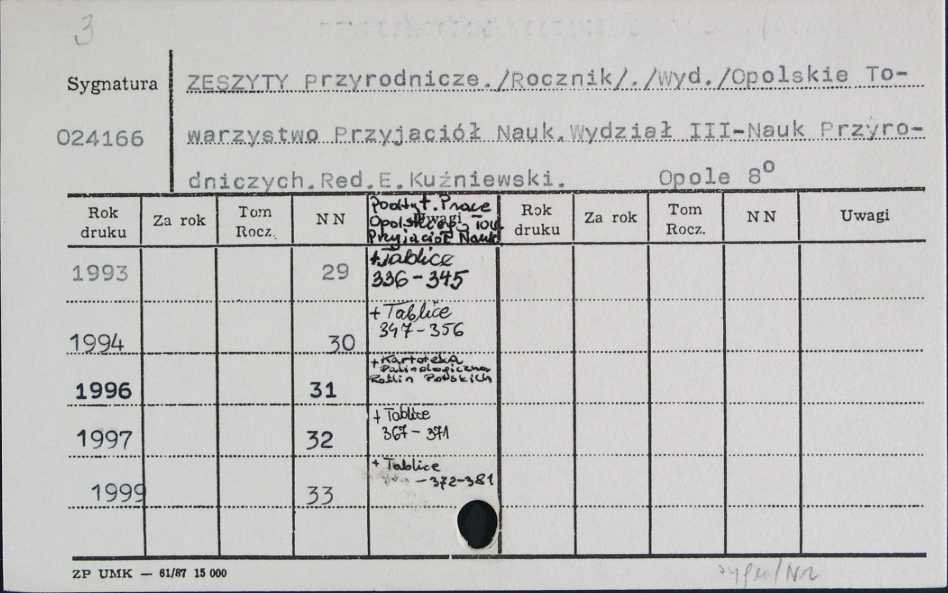 3
Sygnatura ZESZYTY Przyrodnicze./Rocznik/./Wyd./Opolskie To-
024166 warzystwo Przyjaciół Nauk.Wydział III-Nauk Przyro-
dniczych.Red.E.Kuźniewski. Opole 8°
Rok druku Za rok Tom Rocz. NN Uwagi Rok druku Za rok Tom Rocz. NN Uwagi
Podtyt. Prace
Opolskiego Tow.
Przyjaciół Nauk
1993 29 +Tablice
336-345
1994 30 +Tablice
347-356
1996 31 +Kartoteka
Palinologiczna
Roślin Polskich
1997 32 +Tablice
367-371
1999 33 +Tablice
-372-381
ZP UMK — 61/87 15 000